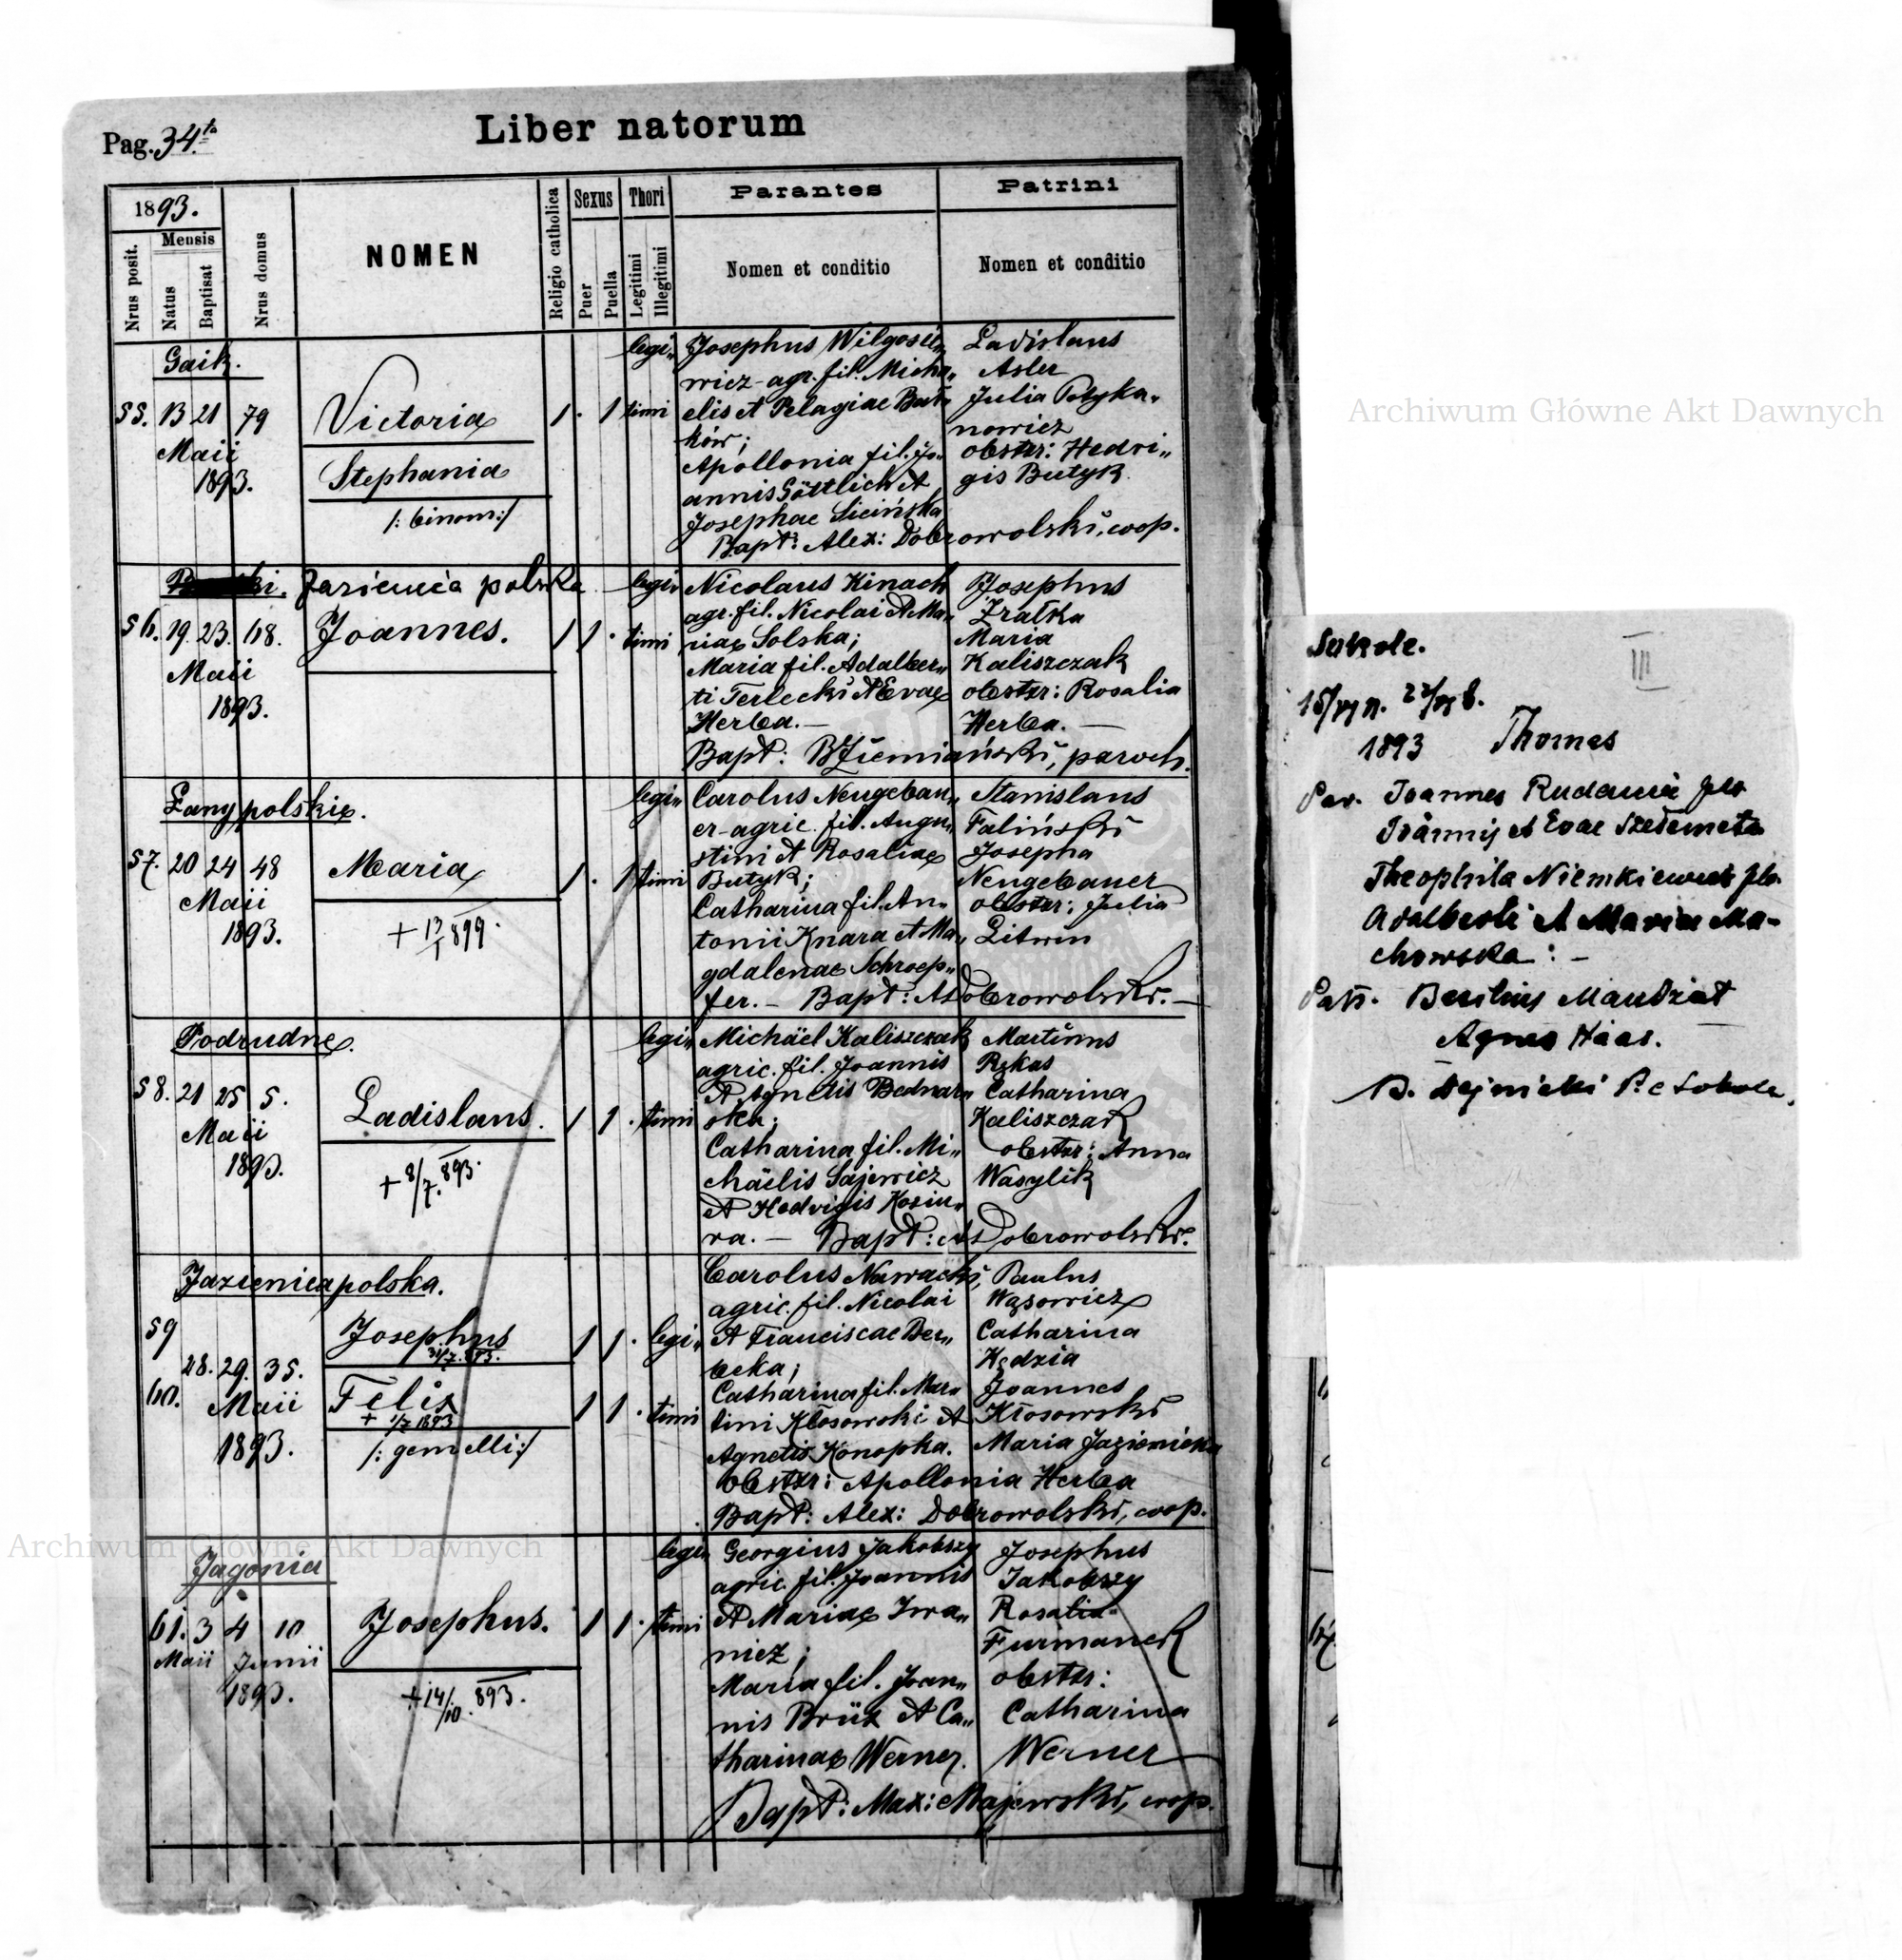 Pag. 34.ta
Liber natorum
1893.
Nrus posit.
Mensis
Natus
Baptisat
Nrus domus
NOMEN
Religio catholica
Sexus
Puer
Puella
Thori
Legitimi
Illegitimi
Parantes
Nomen et conditio
Patrini
Nomen et conditio
Gaik.
55. 13 21 79
Maii
1893.
Victoria
Stephania
/: binom:/
1 . 1
legi„
timi
Josephus Wilgosie„
wicz agr. fil. Micha„
elis et Pelagiae Bat„
ków;
Apollonia fil. Jo„
annis Göttlich et
Josephae Sicińska
Ladislaus
Asler
Julia Potyka„
nowicz
obstr: Hedvi„
gis Butyk
Bapt: Alex: Dobrowolski, coop.
Jazienica polska
56. 19. 23. 68.
Maii
1893.
Joannes.
1 1 .
legi„
timi
Nicolaus Kinach
agr. fil. Nicolai et Ma„
riae Solska;
Maria fil. Adalber„
ti Terlecki et Evae
Herba. —
Josephus
Zratka
Maria
Kaliszczak
obstr: Rosalia
Herba. —
Bapt: BZiemiański, paroch.
Łany polskie.
57. 20 24 48
Maii
1893.
Maria
+ 13/1 899.
1 . 1
legi„
timi
Carolus Neugebau„
er agric. fil. Augu„
stini et Rosaliae
Butyk;
Catharina fil. An„
tonii Knara et Ma„
gdalenae Schroep„
fer. — Bapt: ADobrowolski. —
Stanislaus
Faliński
Josepha
Neugebauer
obstr: Julia
Litwin
Podrudne.
58. 21 25 5.
Maii
1893.
Ladislaus.
+ 8/7. 893.
1 1 .
legi„
timi
Michaël Kaliszczak
agric. fil. Joannis
et Agnetis Bednar„
ska;
Catharina fil. Mi„
chaëlis Sajewicz
et Hedvigis Koziu„
ra. — Bapt: ADobrowolski.
Martinus
Rękas
Catharina
Kaliszczak
obstr: Anna
Wasylik
Jazienica polska.
59
28. 29. 35.
60.
Maii
1893.
Josephus
31/7. 893.
Felix
+ 1/7 1893
/: gemelli:/
1 1 .
1 1 .
legi„
timi
Carolus Nawacki,
agric. fil. Nicolai
et Franciscae Ber„
beka;
Catharina fil. Mar„
tini Kłosowski et
Agnetis Konopka.
Paulus
Wąsowicz
Catharina
Kędzia
Joannes
Kłosowski
Maria Jazienicka
obstr: Apollonia Herba
Bapt: Alex: Dobrowolski, coop.
Jagonia
61. 3 4 10
Maii Junii
1893.
Josephus.
+ 14/10. 893.
1 1 .
legi„
timi
Georgius Jakobszy
agric. fil. Joannis
et Mariae Iwa„
nicz;
Maria fil. Joan„
nis Brüx et Ca„
tharinae Werner.
Josephus
Jakobszy
Rosalia
Furmanek
obstr:
Catharina
Werner
Bapt: Max: Majewski, coop.
III
Sokole.
1893 Thomas
Par. Joannes Rudawic
Joannis et Evae
Theophila Niemkiewicz
Adalberti et Maria Ma-
chowska : —
Patr. Basilius Mandziat
Agnes Haas.
B. Dejnicki
Archiwum Główne Akt Dawnych
Archiwum Główne Akt Dawnych